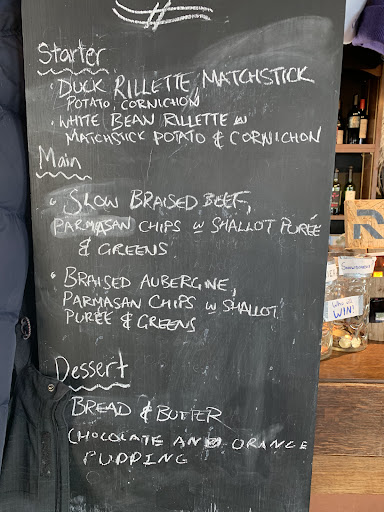 Starter
• DUCK RILLETTE, MATCHSTICK
POTATO, CORNICHON,
• WHITE BEAN RILLETTE w
MATCHSTICK POTATO & CORNICHON
Main
• SLOW BRAISED BEEF,
PARMASAN CHIPS w SHALLOT PURÉE
& GREENS
• BRAISED AUBERGINE,
PARMASAN CHIPS w SHALLOT
PURÉE & GREENS
Dessert
BREAD & BUTTER
CHOCOLATE AND ORANGE
PUDDING
WIN!